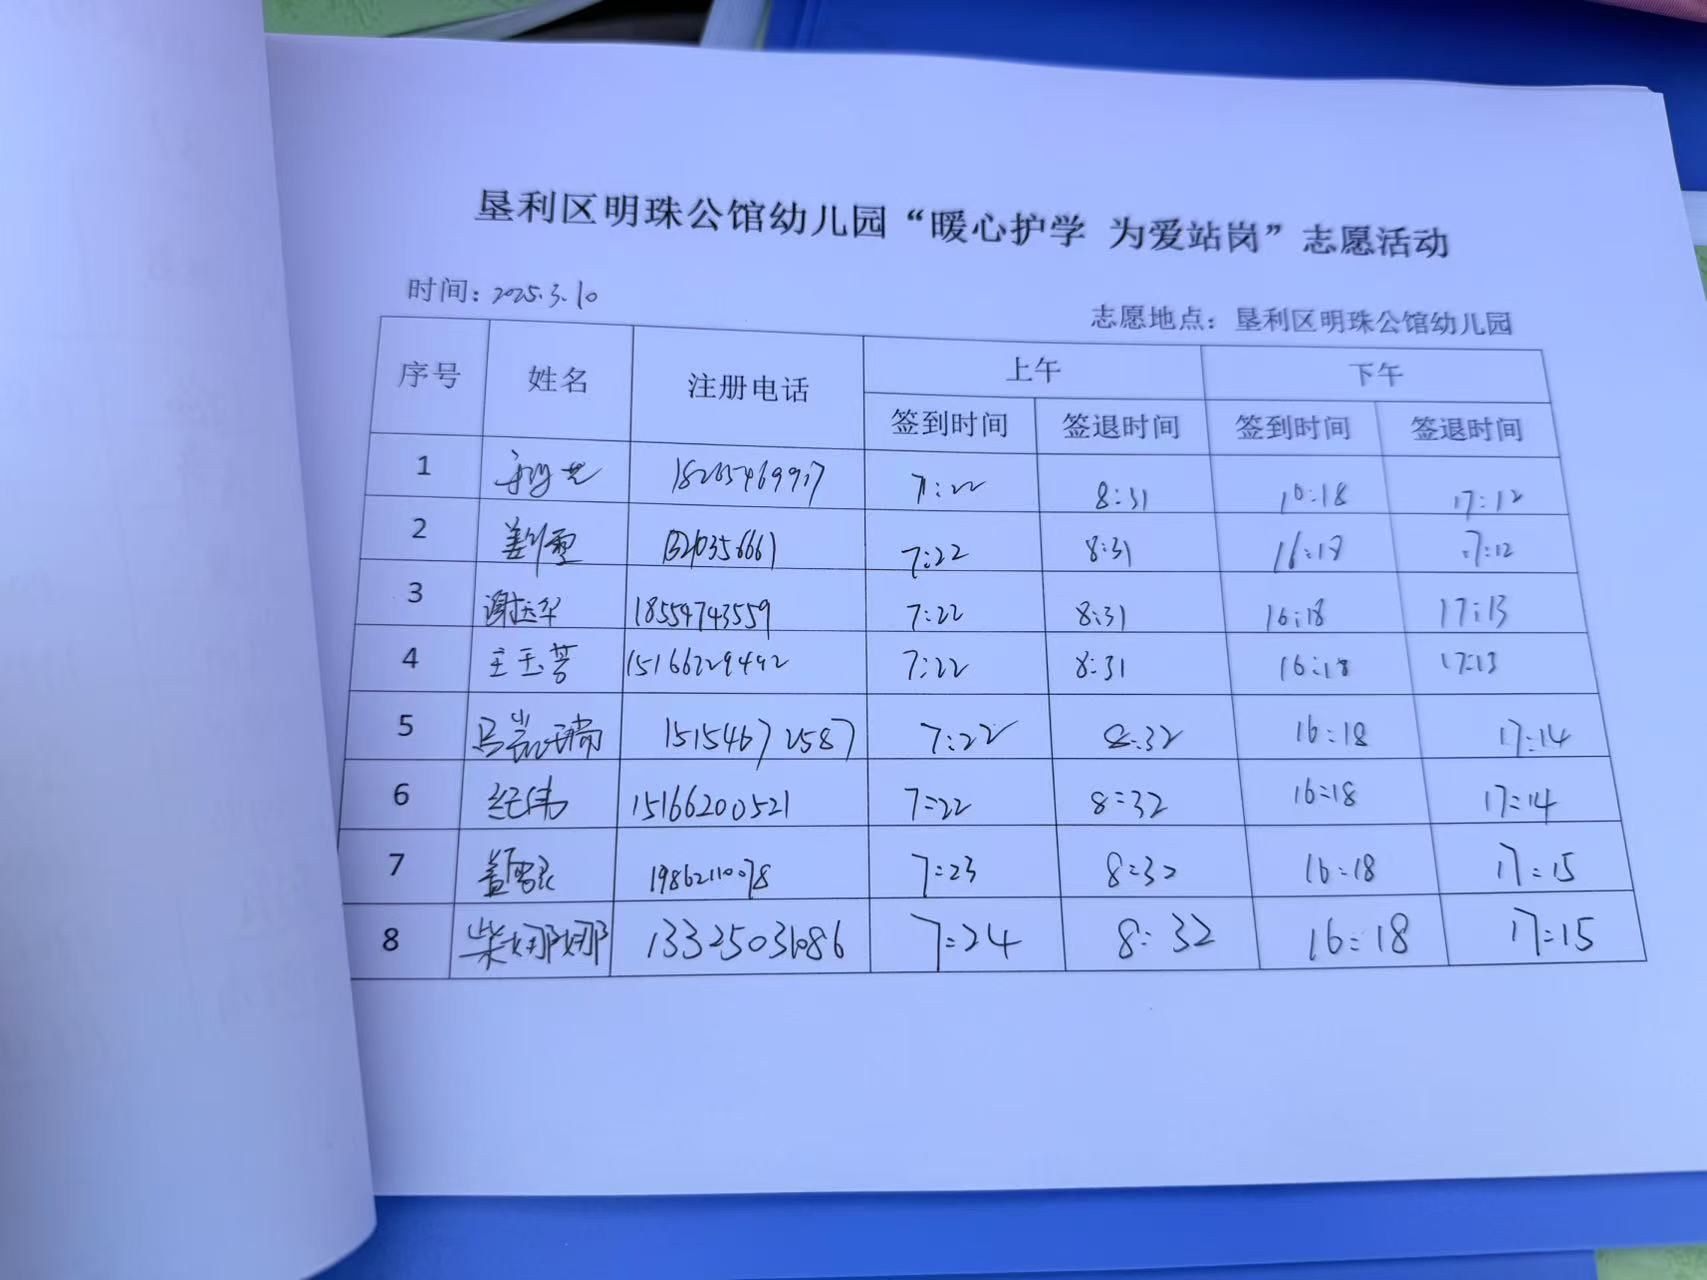 垦利区明珠公馆幼儿园“暖心护学 为爱站岗”志愿活动
时间：2025.3.10
志愿地点：垦利区明珠公馆幼儿园
序号 姓名 注册电话 上午 下午
签到时间 签退时间 签到时间 签退时间
1 7:22 8:31 17:12
2 7:22 8:31 16:18 17:12
3 18554743559 7:22 8:31 16:18 17:13
4 王玉芳 15166229492 7:22 8:31 16:18 17:13
5 马凯瑞 15154672587 7:22 8:32 16:18 17:14
6 纪伟 15166200521 7:22 8:32 16:18 17:14
7 19862110078 7:23 8:32 16:18 17:15
8 柴娜娜 13325031086 7:24 8:32 16:18 17:15